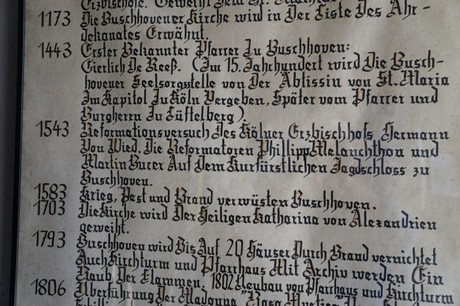 Erzbischöfe. Geweiht dem St.
1173 Die Buschhovener Kirche wird in Der Liste Des Ahr-
dekanates Erwähnt.
1443 Erster Bekannter Pfarrer Zu Buschhoven:
Gierlich De Reeß. (Im 15. Jahrhundert wird Die Busch-
hovener Seelsorgstelle von Der Äbtissin von St. Maria
Im Kapitol Zu Köln Vergeben, Später vom Pfarrer und
Burgherrn Zu Lüftelberg).
1543 Reformationsversuch Des Kölner Erzbischhofs Hermann
Von Wied. Die Reformatoren Phillipp Melanchthon und
Martin Bucer Auf Dem Kurfürstlichen Jagdschloss zu
Buschhoven.
1583 Krieg, Pest und Brand verwüsten Buschhoven.
1703 Die Kirche wird Der Heiligen Katharina von Alexandrien
geweiht.
1793 Buschhoven wird Bis Auf 20 Häuser Durch Brand vernichtet
Auch Kirchturm und Pfarrhaus Mit Archiv werden Ein
Raub Der Flammen. 1802 Neubau von Pfarrhaus und Kirchturm
1806 Überführung Der Madonna "Rosa Mystica"